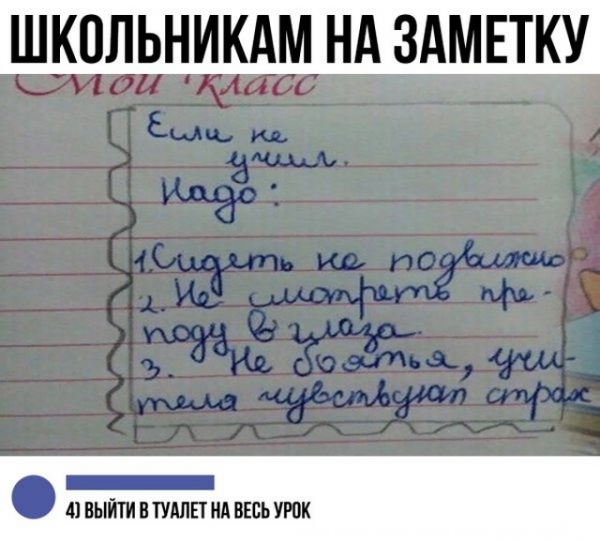 ШКОЛЬНИКАМ НА ЗАМЕТКУ
Мой класс
Если не
учил.
Надо:
1.Сидеть не подвижно
2. Не смотреть пре-
поду в глаза.
3. Не боятья, учи-
теля чувствуют страх
4) ВЫЙТИ В ТУАЛЕТ НА ВЕСЬ УРОК